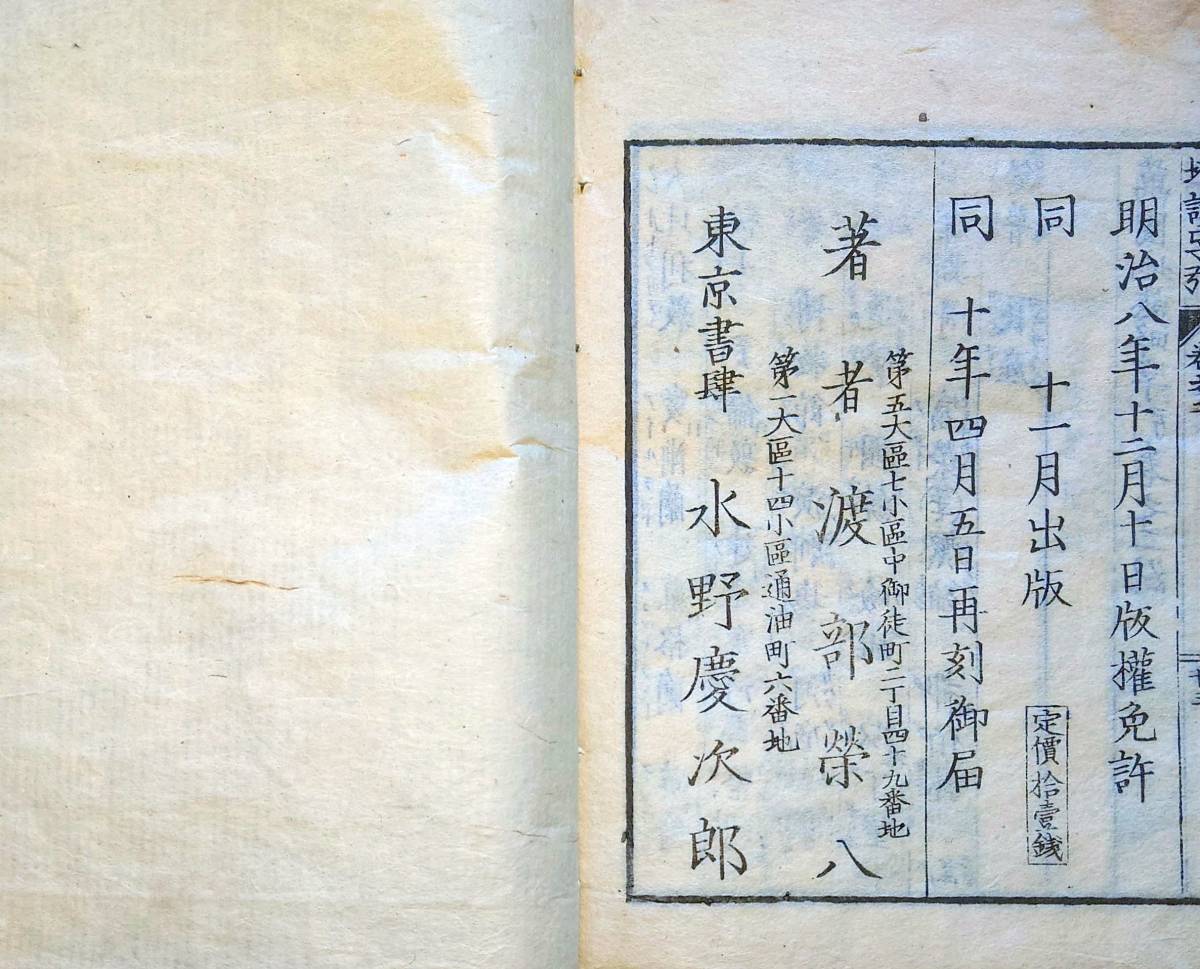 明治八年十二月十日版權免許
同　十一月出版
定價拾壹錢
同　十年四月五日再刻御届
第五大區七小區中御徒町二丁目四十九番地
著者　渡部榮八
第一大區十四小區通油町六番地
東京書肆　水野慶次郎